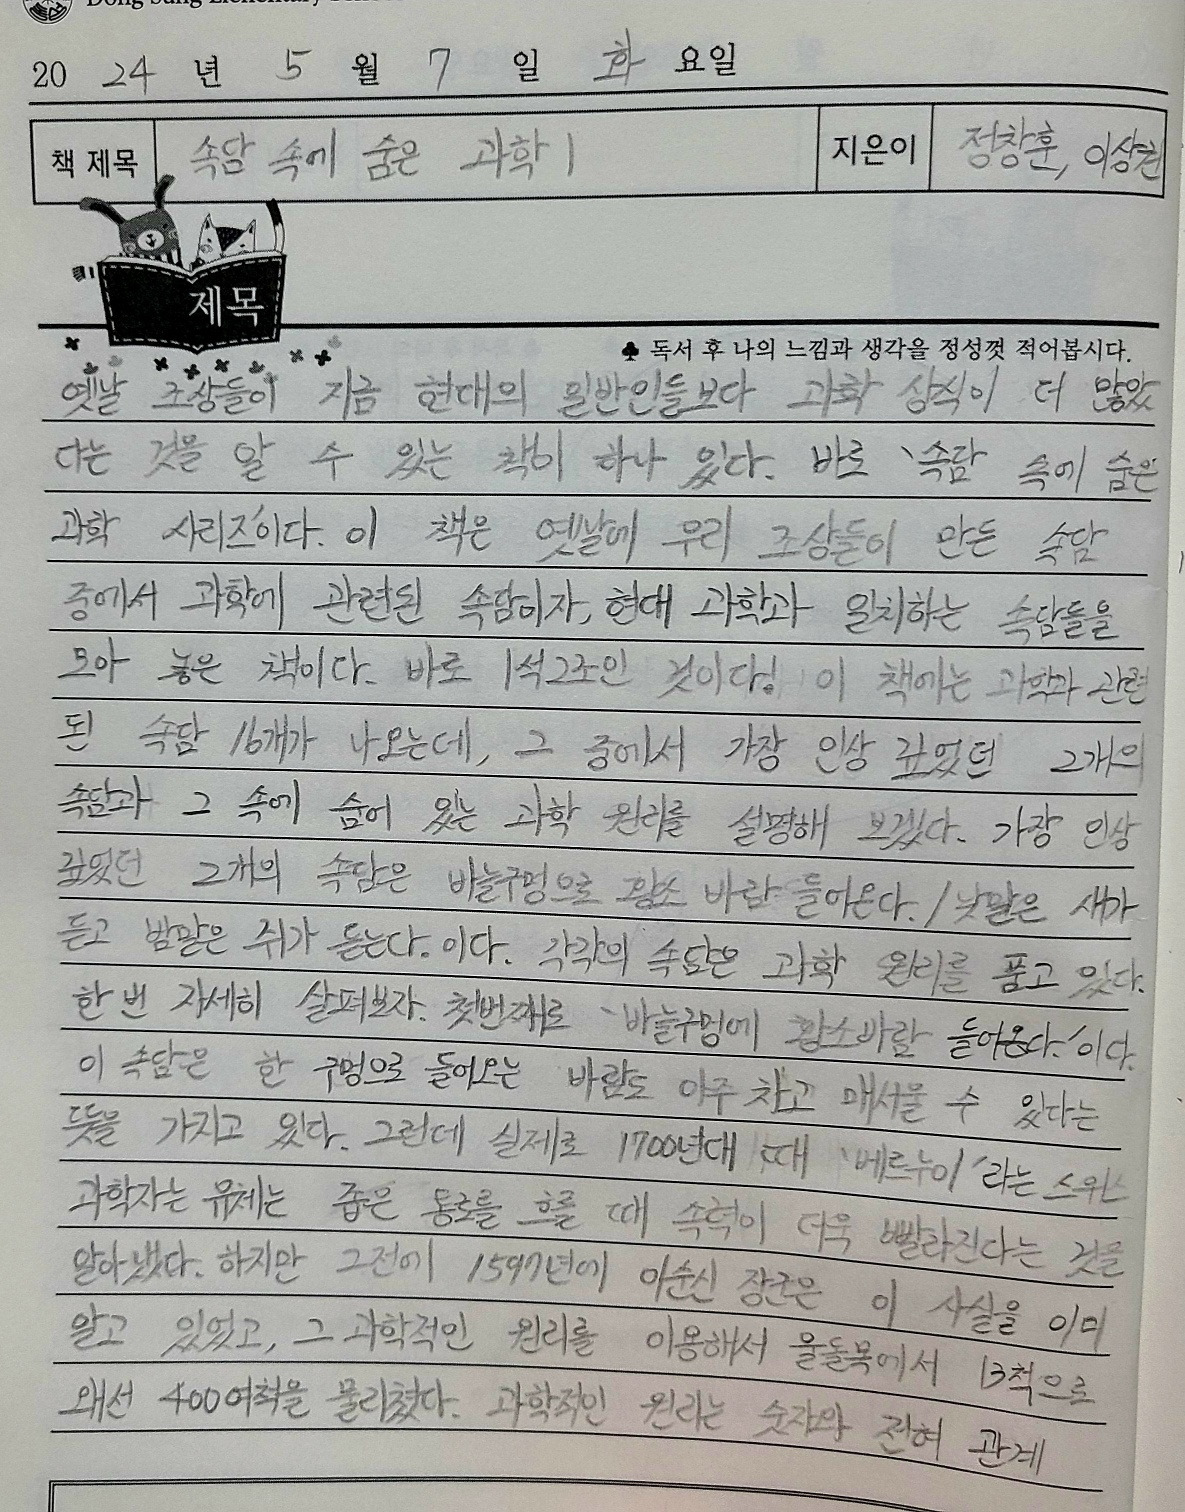 Dong Sung Elementary
2024년 5월 7일 화요일
책 제목 속담 속에 숨은 과학 1 지은이 정창훈, 이상현
제목
♣ 독서 후 나의 느낌과 생각을 정성껏 적어봅시다.
옛날 조상들이 지금 현대의 일반인들보다 과학 상식이 더 많았
다는 것을 알 수 있는 책이 하나 있다. 바로 '속담 속에 숨은
과학 시리즈'이다. 이 책은 옛날에 우리 조상들이 만든 속담
중에서 과학에 관련된 속담이자, 현대 과학과 일치하는 속담들을
모아 놓은 책이다. 바로 1석2조인 것이다! 이 책에는 과학과 관련
된 속담 16개가 나오는데, 그 중에서 가장 인상 깊었던 2개의
속담과 그 속에 숨어 있는 과학 원리를 설명해 보겠다. 가장 인상
깊었던 2개의 속담은 바늘구멍으로 황소 바람 들어온다. / 낮말은 새가
듣고 밤말은 쥐가 듣는다. 이다. 각각의 속담은 과학 원리를 품고 있다.
한 번 자세히 살펴보자. 첫번째로 '바늘구멍에 황소바람 들어온다.'이다.
이 속담은 한 구멍으로 들어오는 바람도 아주 차고 매서울 수 있다는
뜻을 가지고 있다. 그런데 실제로 1700년대 때 '베르누이'라는 스위스
과학자는 유체는 좁은 통로를 흐를 때 속력이 더욱 빨라진다는 것을
알아냈다. 하지만 그전에 1597년에 이순신 장군은 이 사실을 이미
알고 있었고, 그 과학적인 원리를 이용해서 울돌목에서 13척으로
왜선 400여척을 물리쳤다. 과학적인 원리는 숫자와 전혀 관계